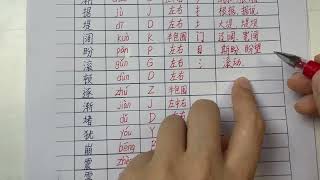 据 jù J 左右 扌 根据、据说
堤 dī D 左右 土 大堤、堤坝
阔 kuò K 半包围 门
盼 pàn P 左右 目 期盼、盼望
滚 gǔn G 左右 氵 滚动
顿 dùn D 左右
逐 zhú Z 半包围
渐 jiàn J 左中右
堵 dǔ D 左右
犹 yóu Y
崩 bēng B
震